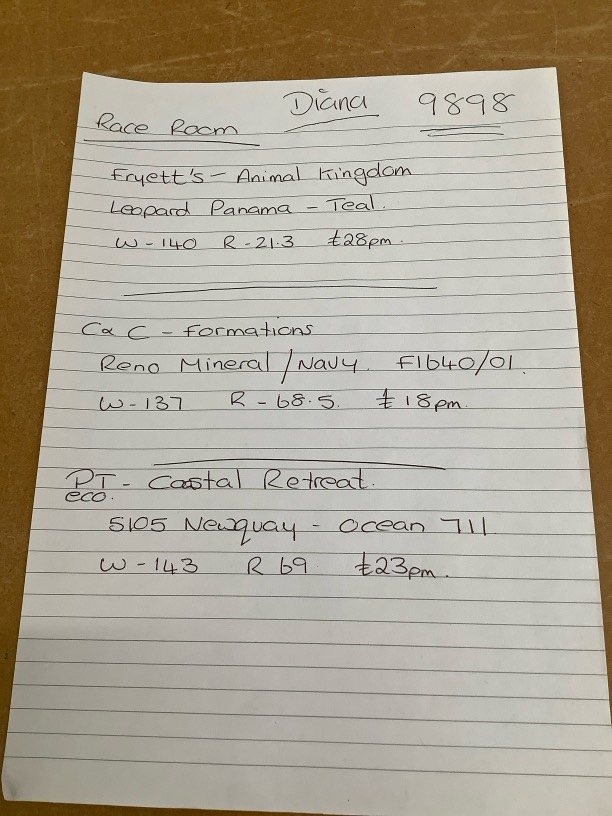 Diana 9898
Race Room
Fryett's - Animal Kingdom
Leopard Panama - Teal.
W - 140 R - 21.3 £28pm.
C & C - Formations
Reno Mineral / Navy. F1640/01.
W - 137 R - 68.5. £18pm.
PT - Coastal Retreat.
eco.
5105 Newquay - Ocean 711
W - 143 R 69 £23pm.